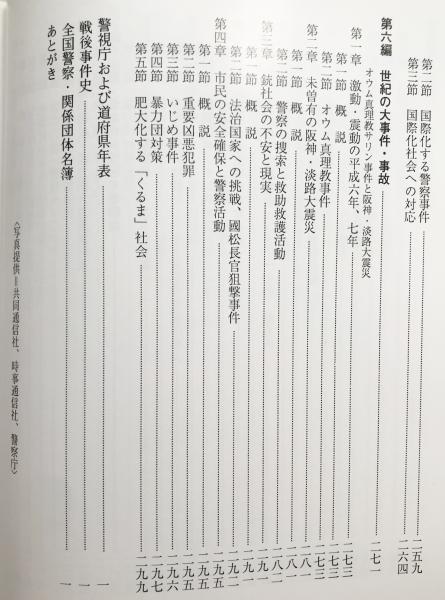 第二節 国際化する警察事件……二五九
第三節 国際化社会への対応……二六四
第六編 世紀の大事件・事故
オウム真理教サリン事件と阪神・淡路大震災……二七一
第一章 激動・震動の平成六年、七年……二七三
第一節 概説……二七三
第二節 オウム真理教事件……二七三
第二章 未曽有の阪神・淡路大震災……二八一
第一節 概説……二八一
第二節 警察の捜索と救助救護活動……二八二
第三章 銃社会の不安と現実……二九一
第一節 概説……二九一
第二節 法治国家への挑戦、國松長官狙撃事件……二九二
第四章 市民の安全確保と警察活動……二九五
第一節 概説……二九五
第二節 重要凶悪犯罪……二九五
第三節 いじめ事件……二九六
第四節 暴力団対策……二九七
第五節 肥大化する「くるま」社会……二九九
警視庁および道府県年表……一
戦後事件史……一
全国警察・関係団体名簿……一
あとがき
〈写真提供＝共同通信社、時事通信社、警察庁〉